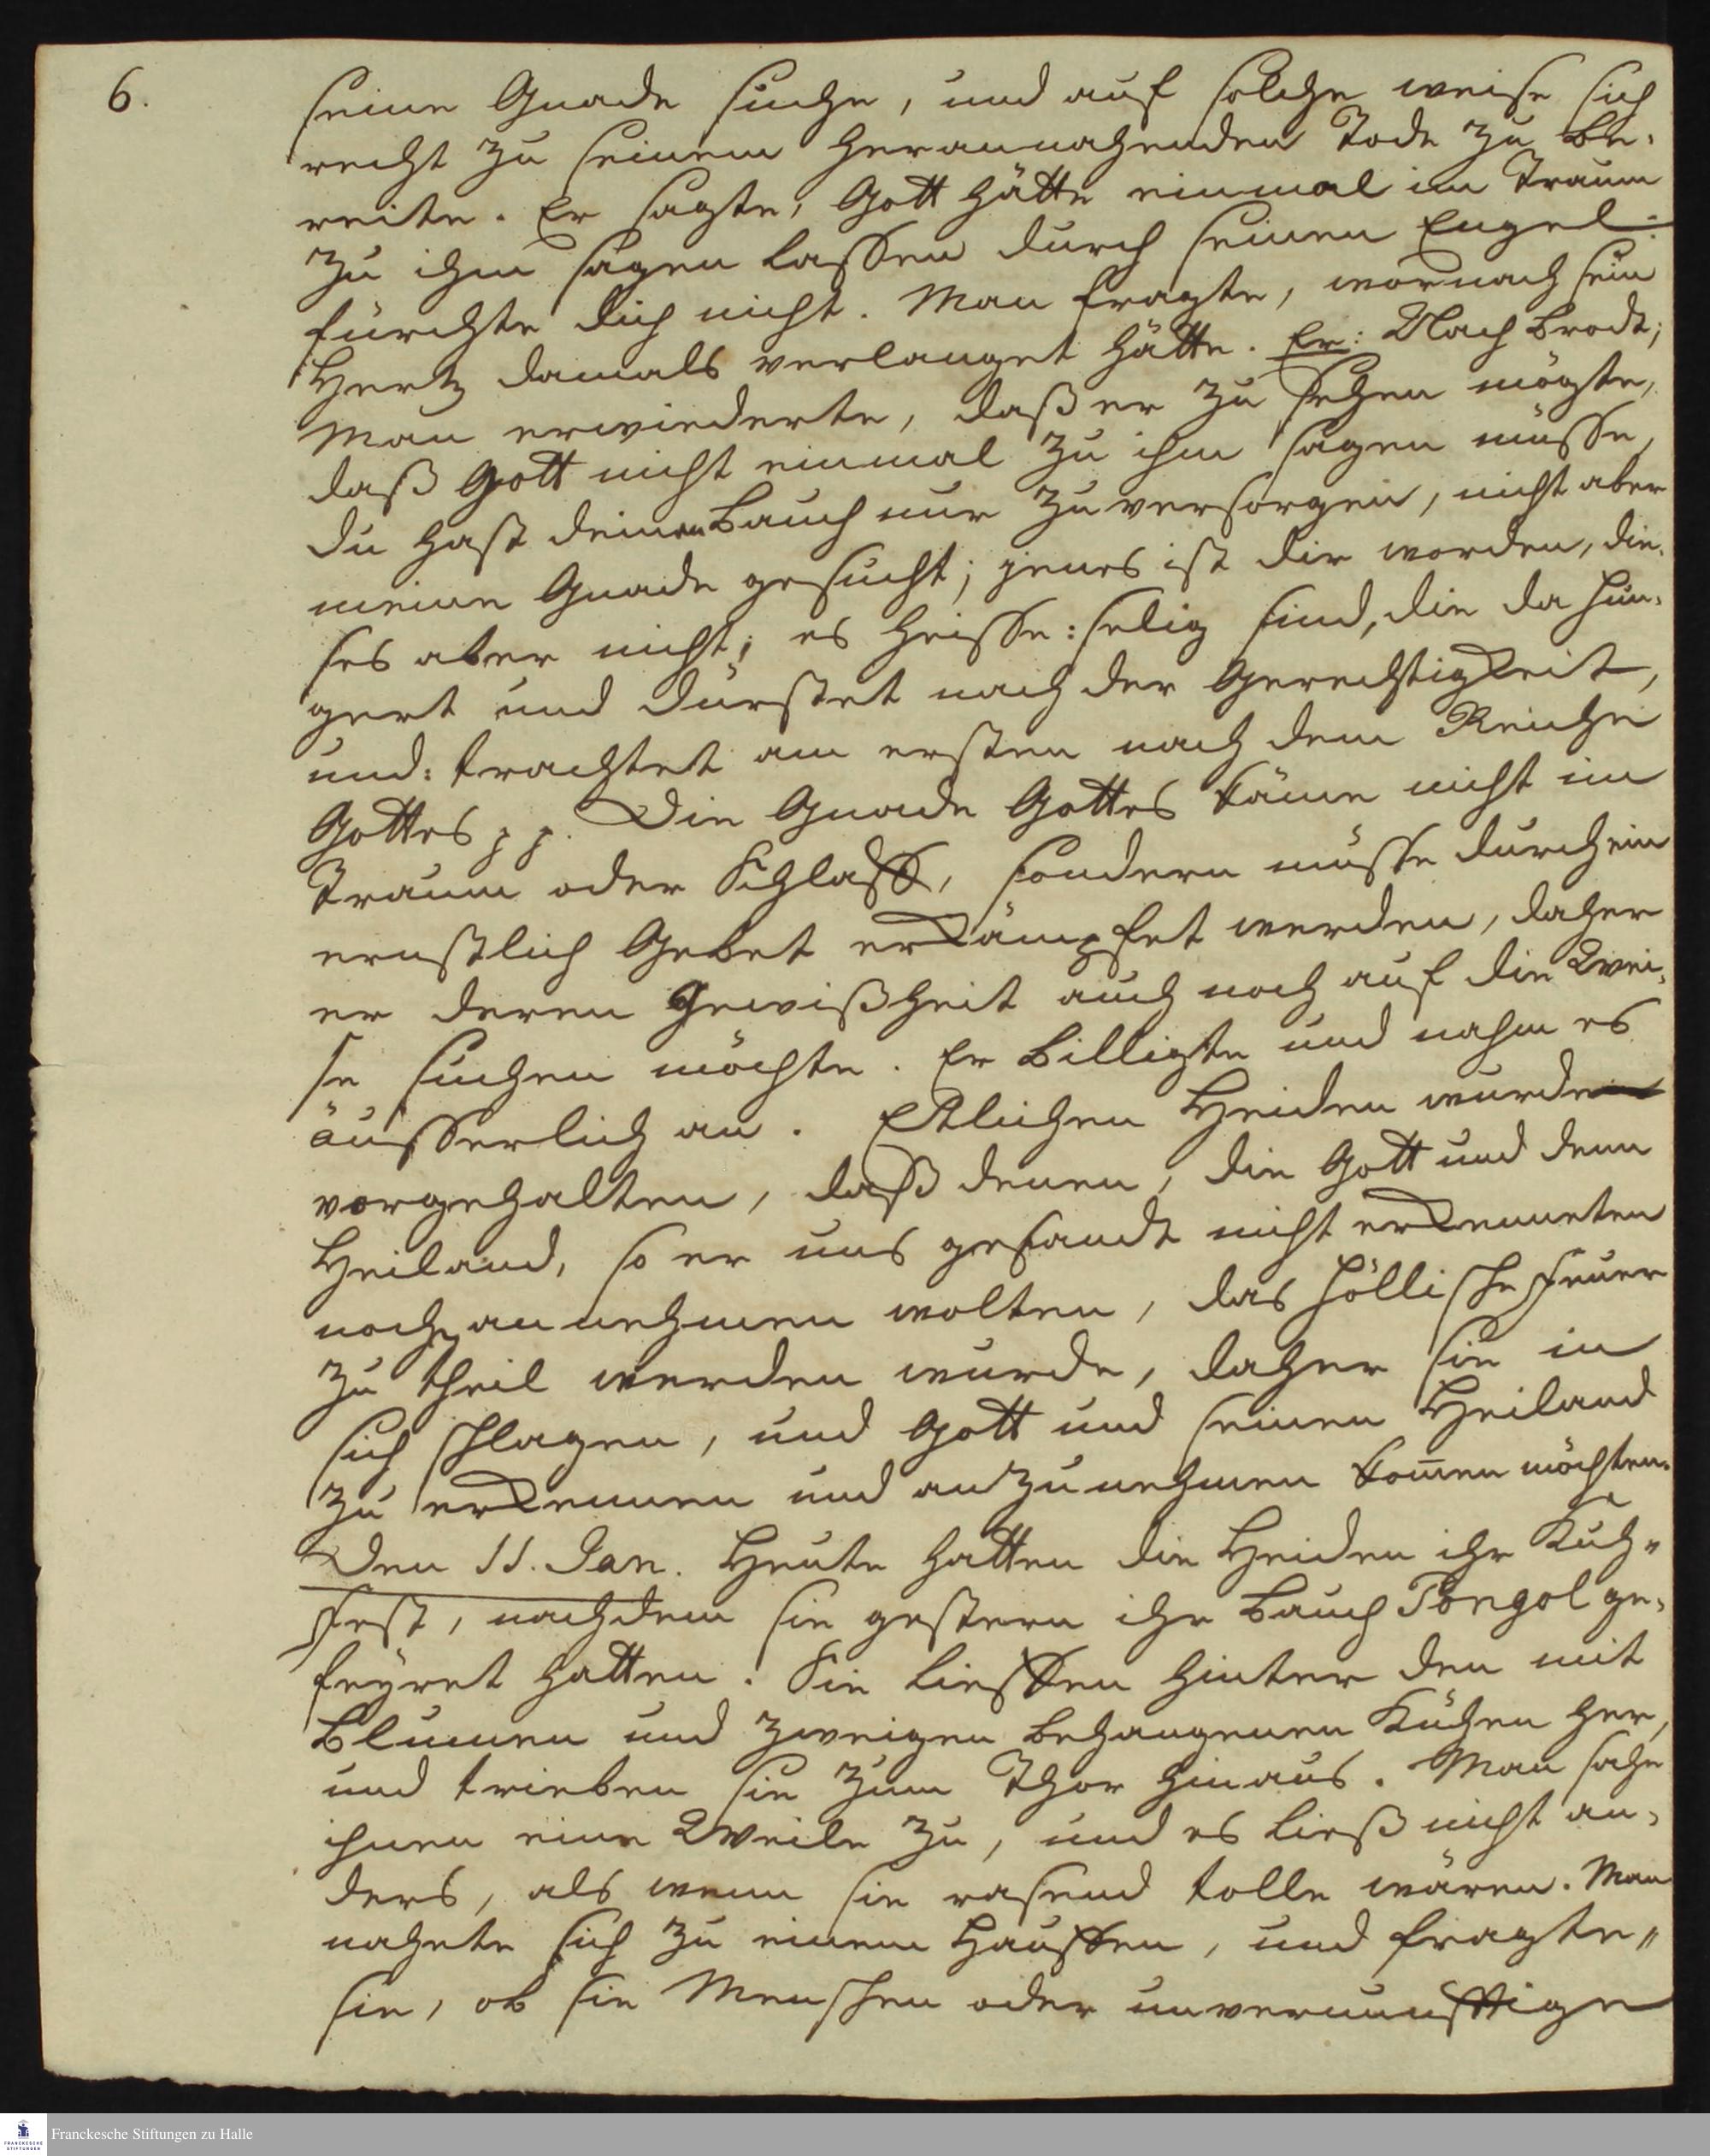 6.
seine Gnade suche, und auf solche weise sich
recht zu seinem herannahenden Tode zu be-
reite. Er sagte, Gott hätte einmal im Traum
zu ihm sagen lassen durch seinen Engel:
fürchte dich nicht. Man fragte, wornach sein
Hertz damals verlanget hätte. Er: Nach Brodt;
Man erwiederte, daß er zu sehen mögte,
daß Gott nicht einmal zu ihm sagen müsse,
du hast deinen Bauch nur zu versorgen, nicht aber
meine Gnade gesucht; jenes ist dir worden, die-
ses aber nicht; es heisse: selig sind, die da hun-
gert und dürstet nach der Gerechtigkeit,
und: trachtet am ersten nach dem Reiche
Gottes pp. Die Gnade Gottes käme nicht im
Traum oder Schlaff, sondern müsse durch ein
ernstlich Gebet erkämpfet werden, daher
er deren Gewißheit auch noch auf die Wei-
se suchen möchte. Er billigte und nahm es
äusserlich an. Etlichen Heiden wurde
vorgehalten, daß denen, die Gott und denn
Heiland, so er uns gesandt nicht erkenneten
noch annehmen wolten, das höllische Feuer
zu theil werden wurde, daher sie in
sich schlagen, und Gott und seinen Heiland
zu erkennen und anzunehmen kom̅en möchten.
Den 11. Jan. Heute hatten die Heiden ihr Kuh-
fest, nachdem sie gestern ihr Bauch Pongol ge-
feyret hatten. Sie lieffen hinter den mit
Blumen und Zweigen behangenen Kühen her,
und trieben sie zum Thor hinaus. Man sahe
ihnen eine Weile zu, und es ließ nicht an-
ders, als wenn sie rasend tolle wären. Man
nahete sich zu einem Hauffen, und fragte
sie, ob sie Menschen oder unvernunfftige
Franckesche Stiftungen zu Halle